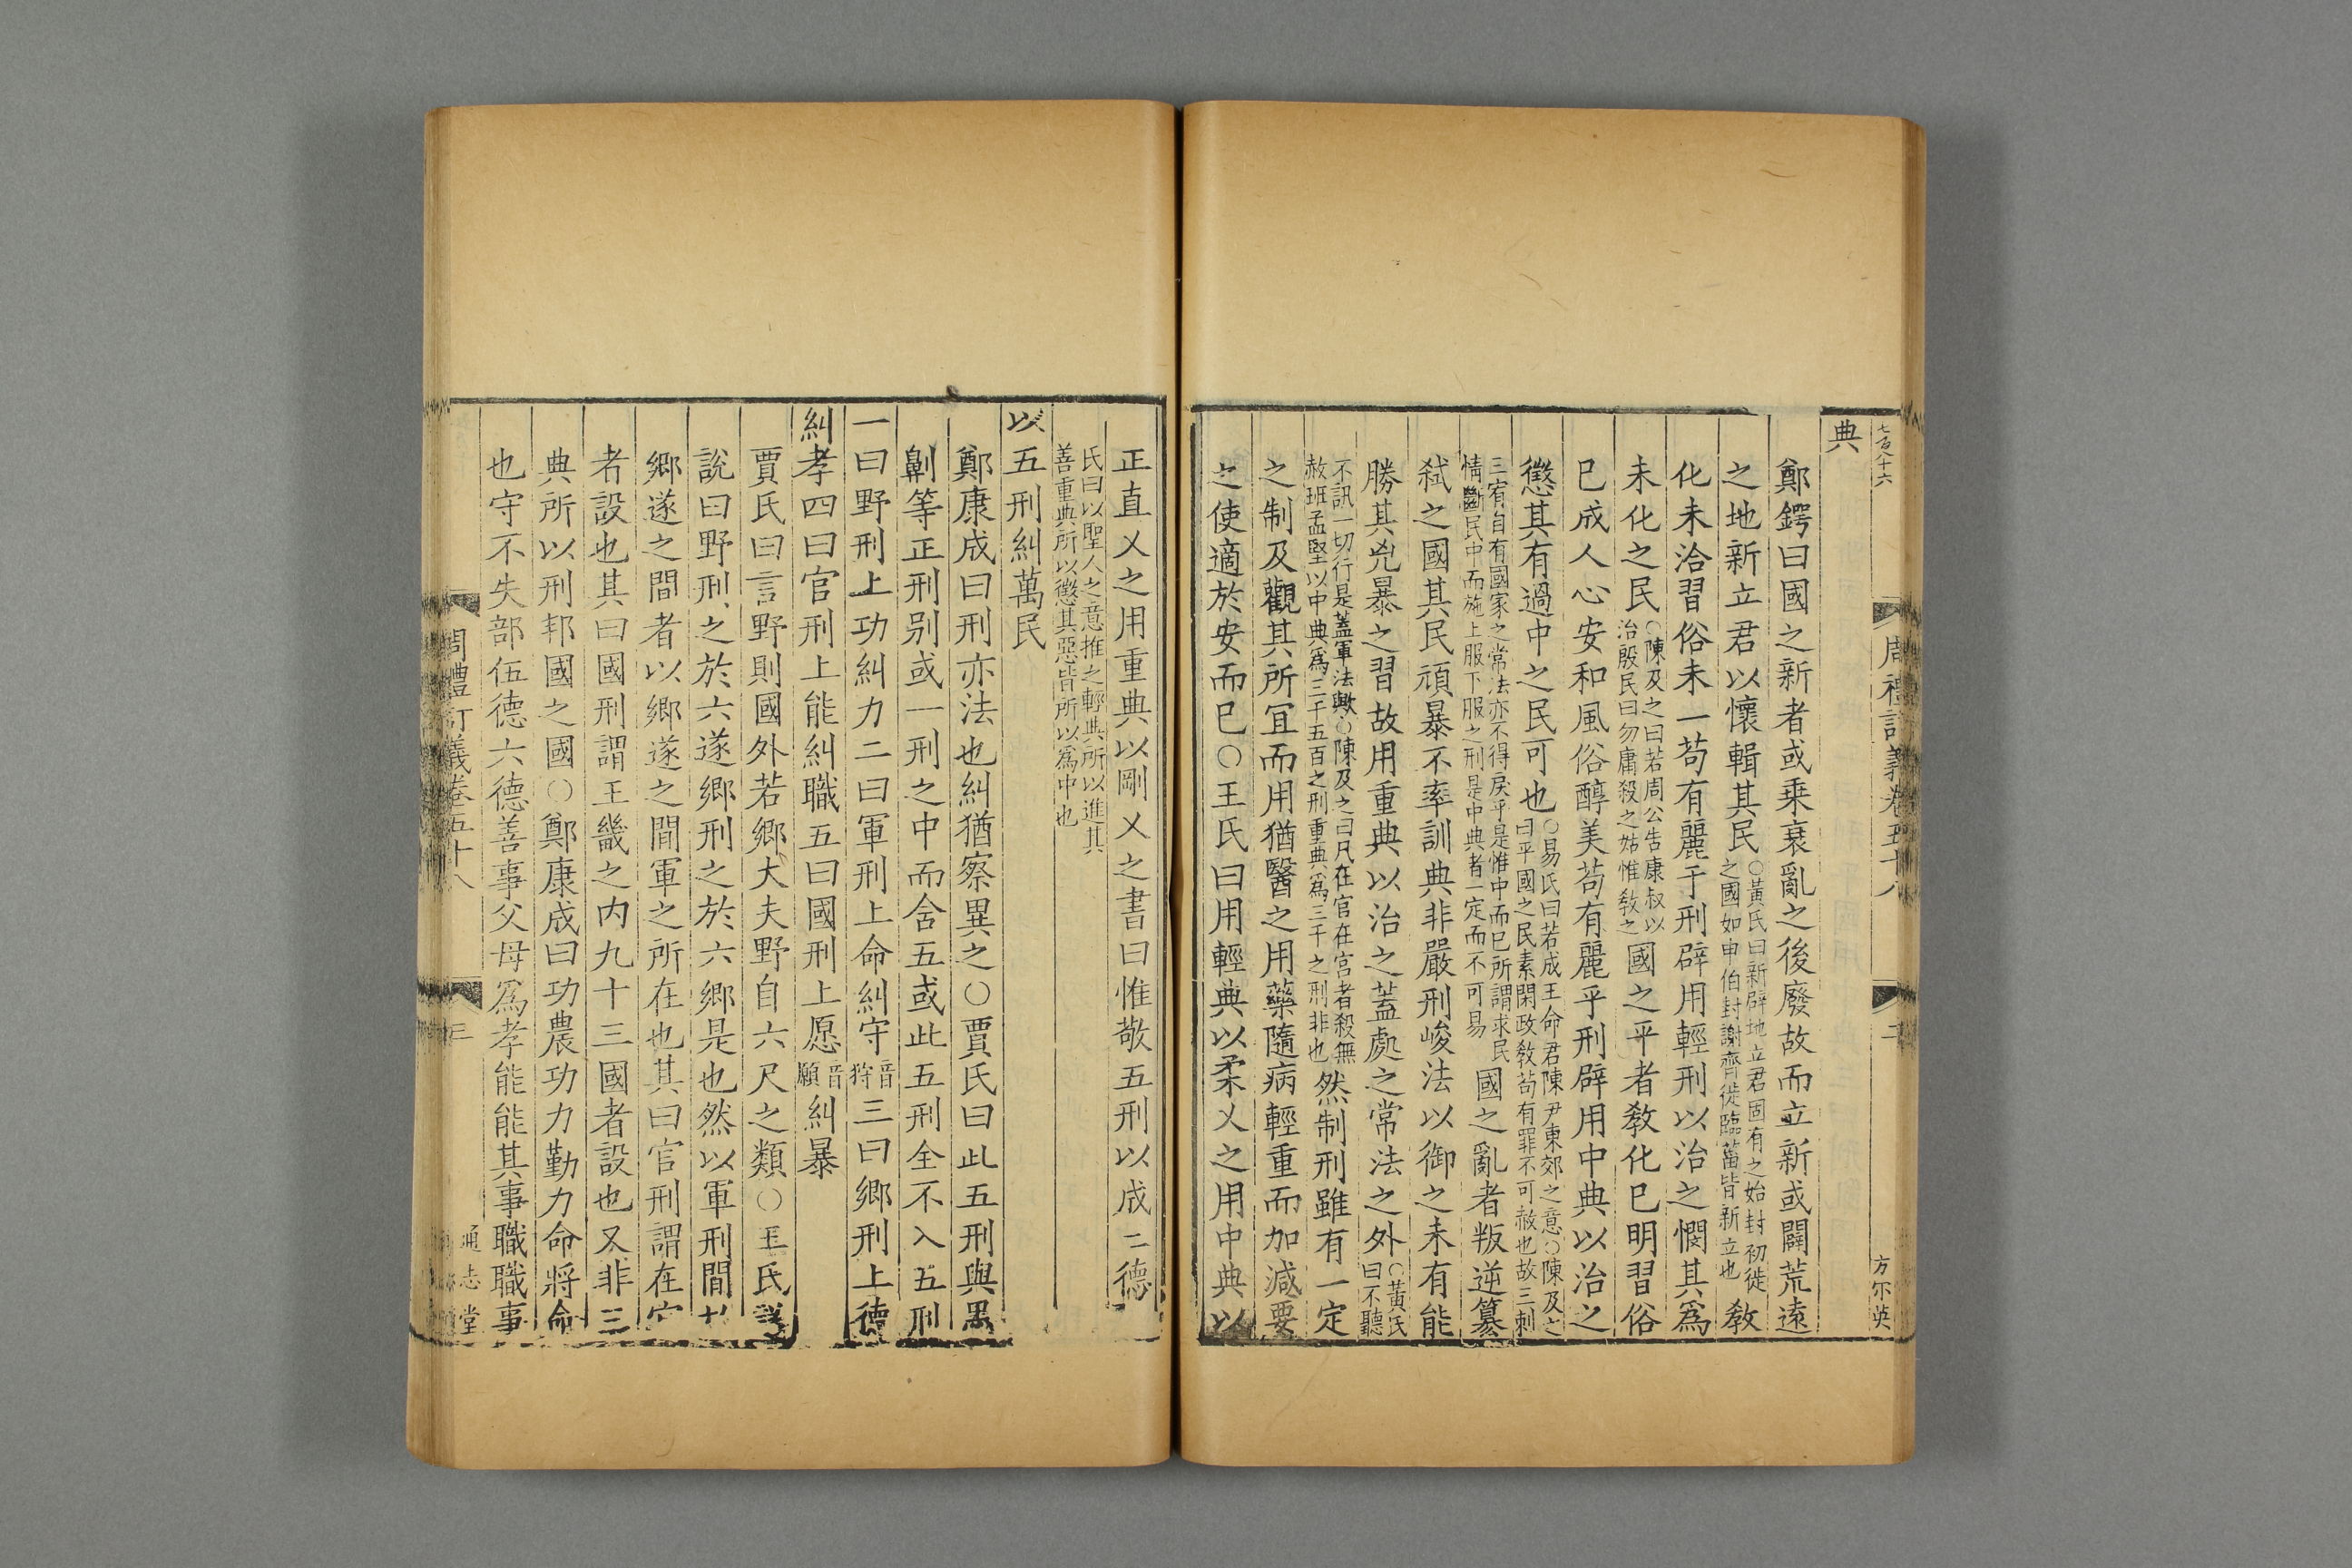 七百八十六
周禮訂義卷五十八
二
方尔英
典
鄭鍔曰國之新者或乗衰亂之後廢故而立新或闢荒遠
之地新立君以懷輯其民○黃氏曰新辟地立君固有之始封初徙之國如申伯封謝齊徙臨菑皆新立也教
化未洽習俗未一苟有麗于刑辟用輕刑以治之憫其爲
未化之民○陳及之曰若周公告康叔以治殷民曰勿庸殺之姑惟敎之國之平者敎化已明習俗
已成人心安和風俗醇美苟有麗乎刑辟用中典以治之
懲其有過中之民可也○易氏曰若成王命君陳尹東郊之意○陳及之曰平國之民素閑政敎苟有罪不可赦也故三刺
三宥自有國家之常法亦不得戾乎是惟中而已所謂求民情斷民中而施上服下服之刑是中典者一定而不可易國之亂者叛逆簒
弑之國其民頑暴不率訓典非嚴刑峻法以御之未有能
勝其兇暴之習故用重典以治之蓋處之常法之外○黃氏曰不聽
不訊一切行是蓋軍法歟○陳及之曰凡在官在宮者殺無赦班孟堅以中典爲二千五百之刑重典爲三千之刑非也然制刑雖有一定
之制及觀其所冝而用猶醫之用藥隨病輕重而加減要
之使適於安而已○王氏曰用輕典以柔乂之用中典以
正直乂之用重典以剛乂之書曰惟敬五刑以成三德
氏曰以聖人之意推之輕典所以進其善重典所以懲其惡皆所以爲中也
以五刑糾萬民
鄭康成曰刑亦法也糾猶察異之○賈氏曰此五刑與墨
劓等正刑别或一刑之中而含五或此五刑全不入五刑
一曰野刑上功糾力二曰軍刑上命糾守音狩三曰鄉刑上德
糾孝四曰官刑上能糾職五曰國刑上愿音願糾暴
賈氏曰言野則國外若鄉大夫野自六尺之類○王氏詳
說曰野刑之於六遂鄉刑之於六鄉是也然以軍刑間於
鄉遂之間者以鄉遂之間軍之所在也其曰官刑謂在官
者設也其曰國刑謂王畿之内九十三國者設也又非三
典所以刑邦國之國○鄭康成曰功農功力勤力命將命
也守不失部伍德六德善事父母爲孝能能其事職職事
周禮訂義卷五十八
三
通志堂